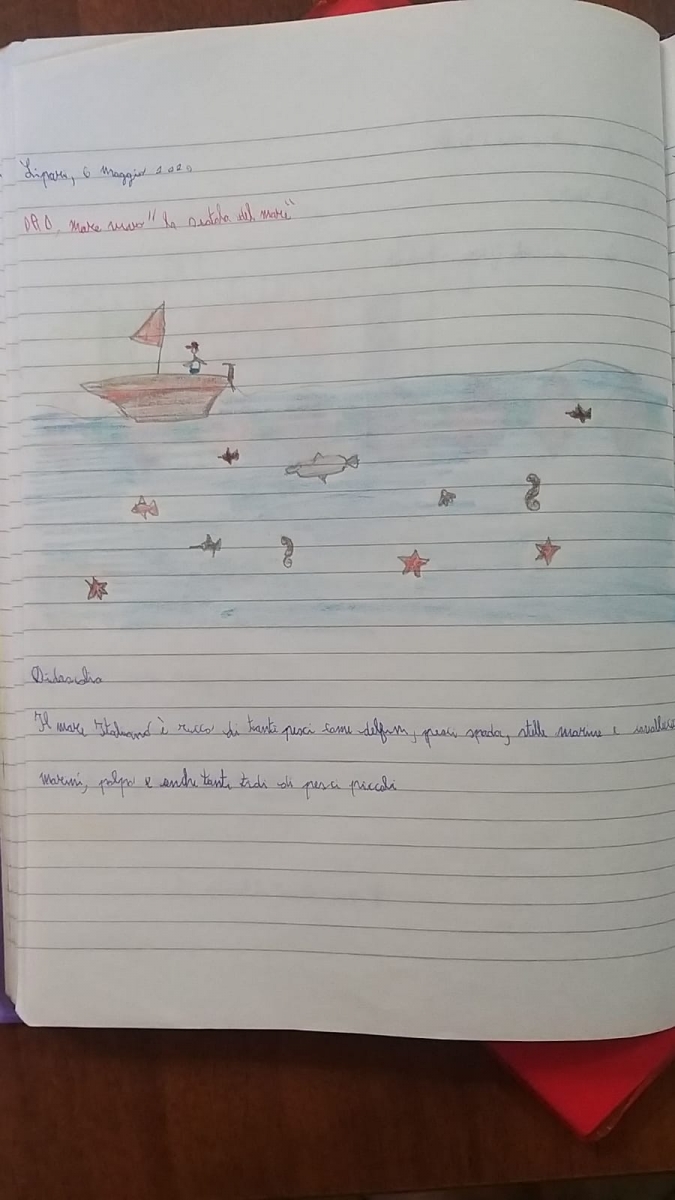 Lipari, 6 Maggio 2020
DAD, mare vivo "la scatola del mare"
Didascalia
Il mare Italiano è ricco di tanti pesci come delfini, pesci spada, stelle marine e cavallucci
marini, polpo e anche tanti tidi di pesci piccoli